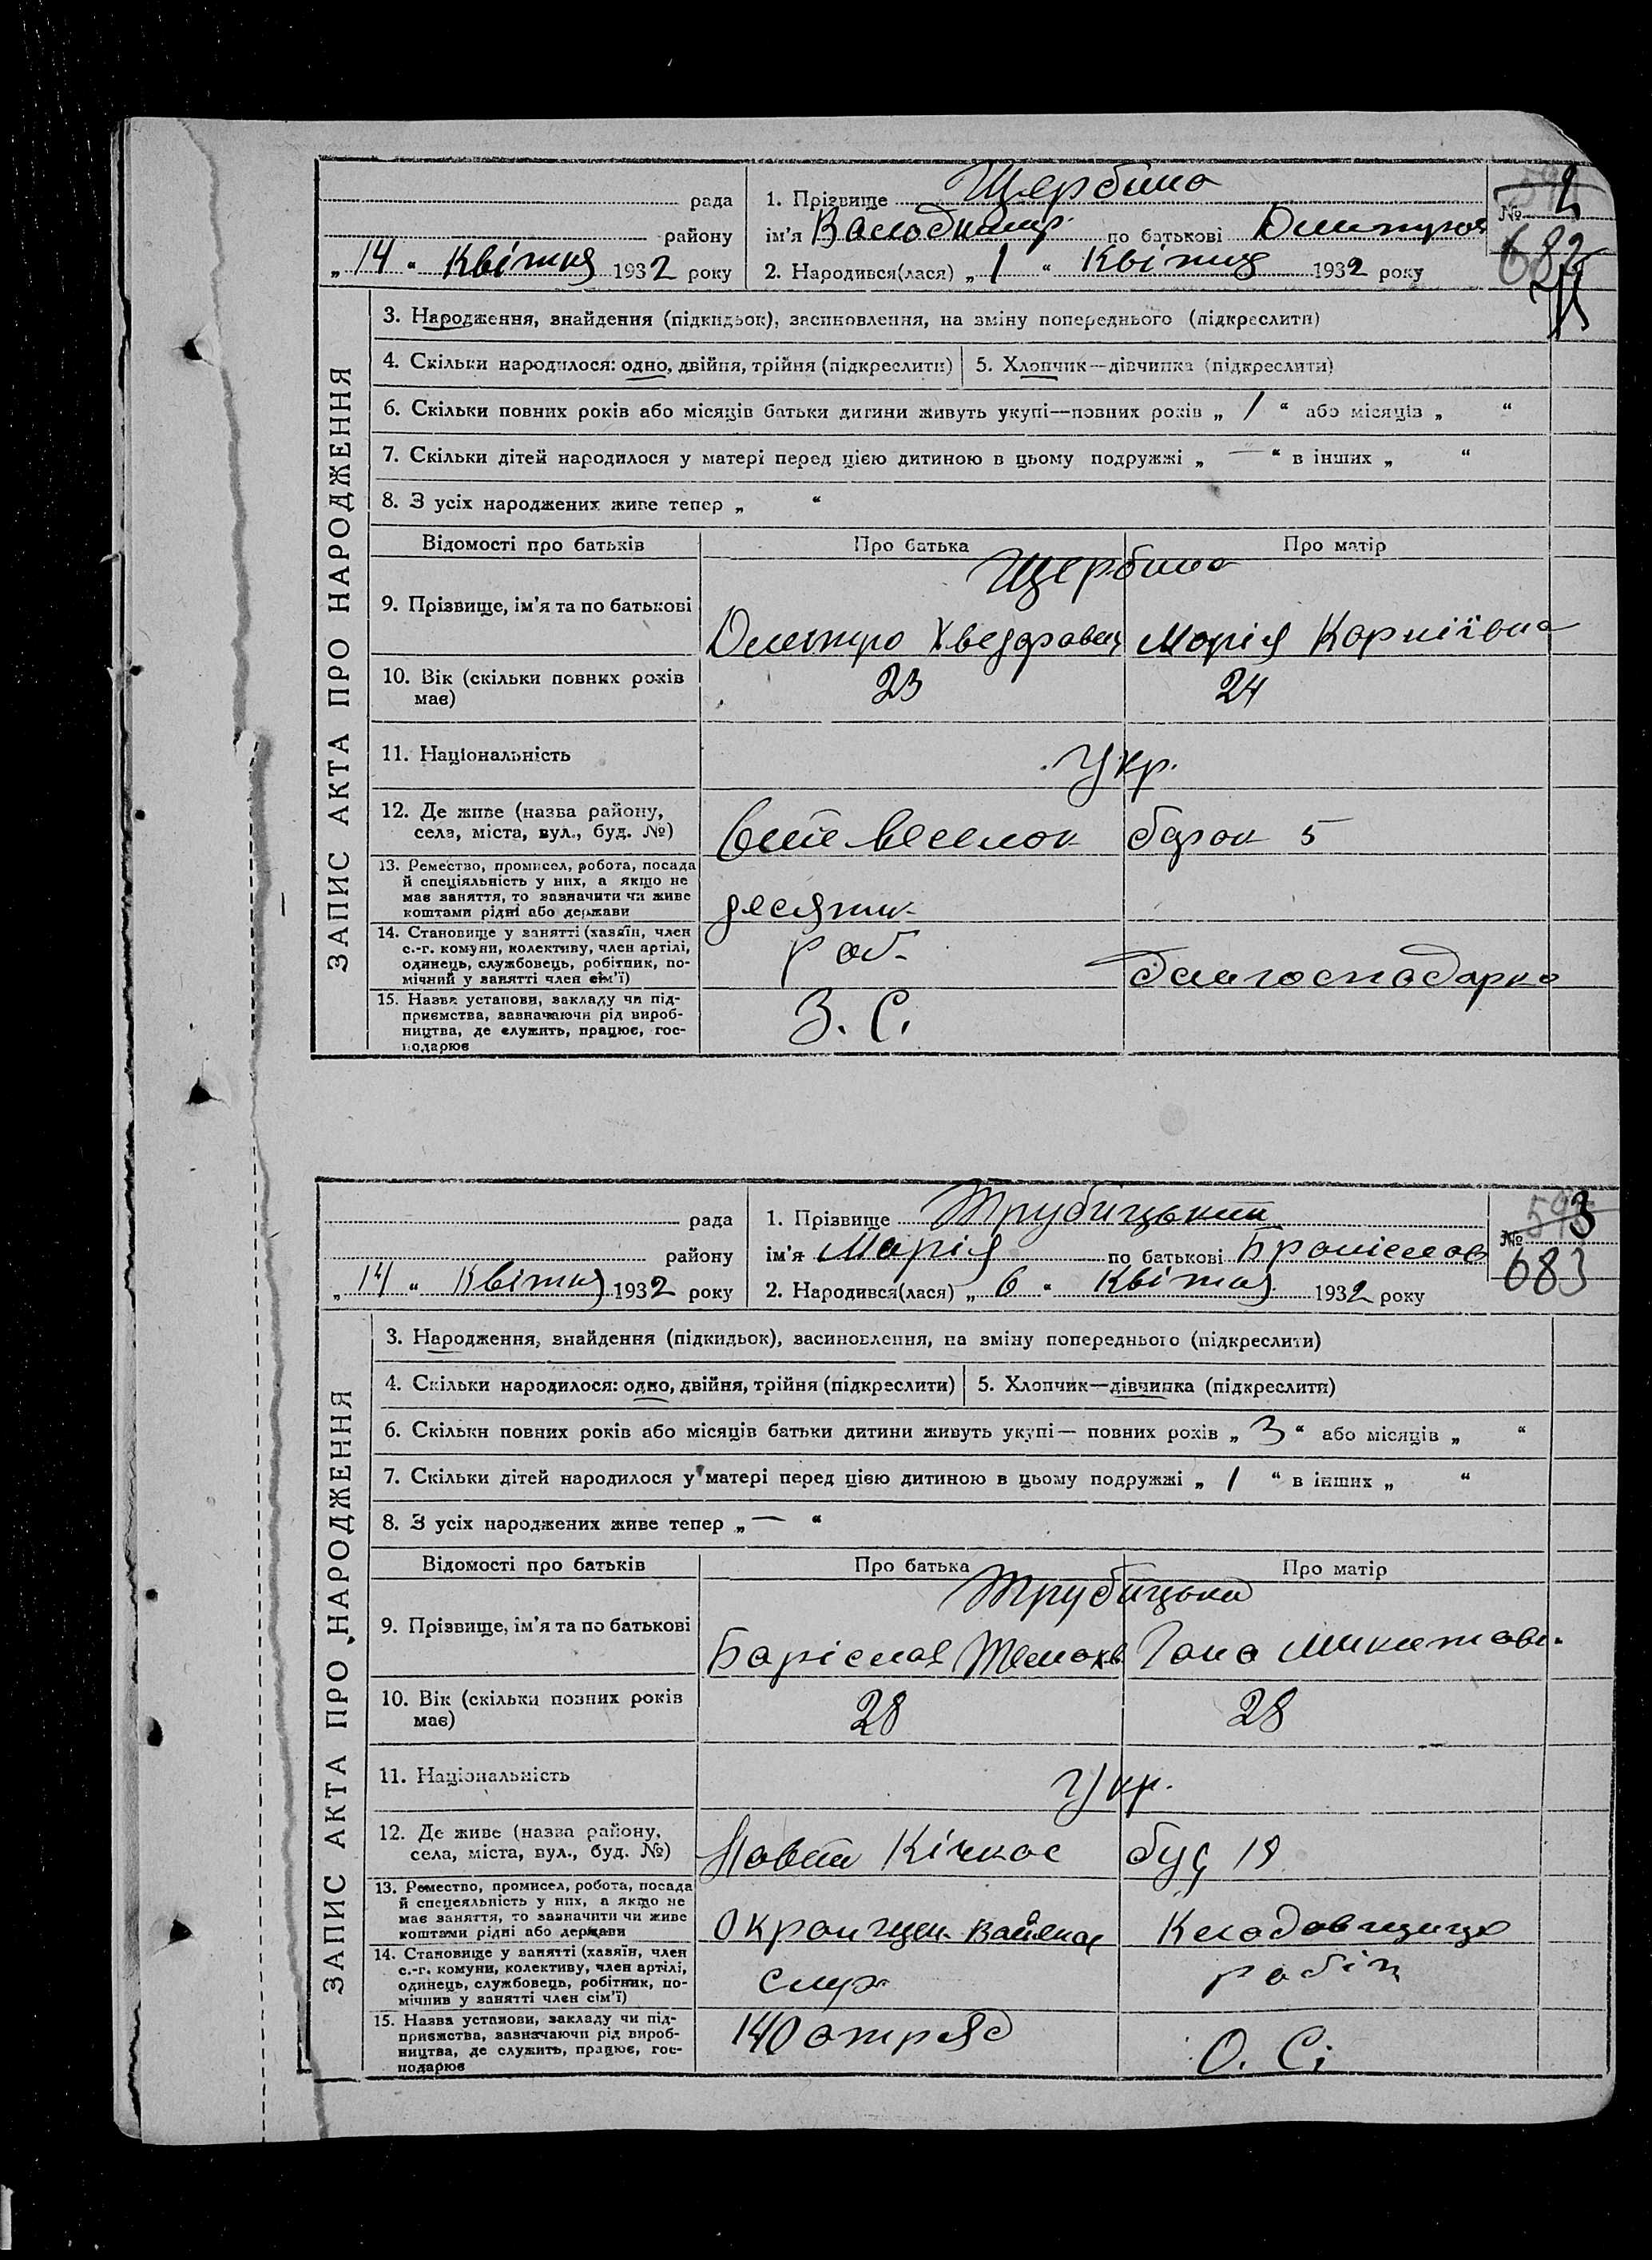 рада
1. Прізвище Щербина
№ 2
району
ім'я Володимир по батькові Дмитров
682
„ 14 “ Квітня 1932 року
2. Народився(лася) „ 1 “ Квітня 1932 року
ЗАПИС АКТА ПРО НАРОДЖЕННЯ
3. Народження, знайдення (підкидьок), засиновлення, на зміну попереднього (підкреслити)
4. Скільки народилося: одно, двійня, трійня (підкреслити)
5. Хлопчик—дівчинка (підкреслити)
6. Скільки повних років або місяців батьки дитини живуть укупі—повних років „ 1 “ або місяців „ “
7. Скільки дітей народилося у матері перед цією дитиною в цьому подружжі „ — “ в інших „ “
8. З усіх народжених живе тепер „ “
Відомості про батьків
Про батька
Про матір
Щербина
9. Прізвище, ім'я та по батькові
Дмитро Хведорович
Марія Корніївна
10. Вік (скільки повних років має)
23
24
11. Національність
Укр.
12. Де живе (назва району,
села, міста, вул., буд. №)
барак 5
13. Ремество, промисел, робота, посада
й спеціяльність у них, а якщо не
має заняття, то зазначити чи живе
коштами рідні або держави
десятник
14. Становище у занятті (хазяїн, член
с.-г. комуни, колективу, член артілі,
одинець, службовець, робітник, по-
мічний у занятті член сім'ї)
роб.
домгосподарка
15. Назва установи, закладу чи під-
приємства, зазначаючи рід вироб-
ництва, де служить, працює, гос-
подарює
З. С.
рада
1. Прізвище Трубіцький
№ 3
району
ім'я Марія по батькові Броніслав
683
„ 14 “ Квітня 1932 року
2. Народився(лася) „ 6 “ Квітня 1932 року
ЗАПИС АКТА ПРО НАРОДЖЕННЯ
3. Народження, знайдення (підкидьок), засиновлення, на зміну попереднього (підкреслити)
4. Скільки народилося: одно, двійня, трійня (підкреслити)
5. Хлопчик—дівчинка (підкреслити)
6. Скільки повних років або місяців батьки дитини живуть укупі— повних років „ 3 “ або місяців „ “
7. Скільки дітей народилося у матері перед цією дитиною в цьому подружжі „ 1 “ в інших „ “
8. З усіх народжених живе тепер „ — “
Відомості про батьків
Про батька
Про матір
9. Прізвище, ім'я та по батькові
10. Вік (скільки повних років має)
28
28
11. Національність
Укр.
12. Де живе (назва району,
села, міста, вул., буд. №)
Кічкас
буд 18
13. Ремество, промисел, робота, посада
й спецеяльність у них, а якщо не
має заняття, то зазначити чи живе
коштами рідні або держави
Кладовщиця
14. Становище у занятті (хазяїн, член
с.-г. комуни, колективу, член артілі,
одинець, службовець, робітник, по-
мічнив у занятті член сім'ї)
служ
робіт
15. Назва установи, закладу чи під-
приємства, зазначаючи рід вироб-
ництва, де служить, працює, гос-
подарює
140 отряд
О. С.